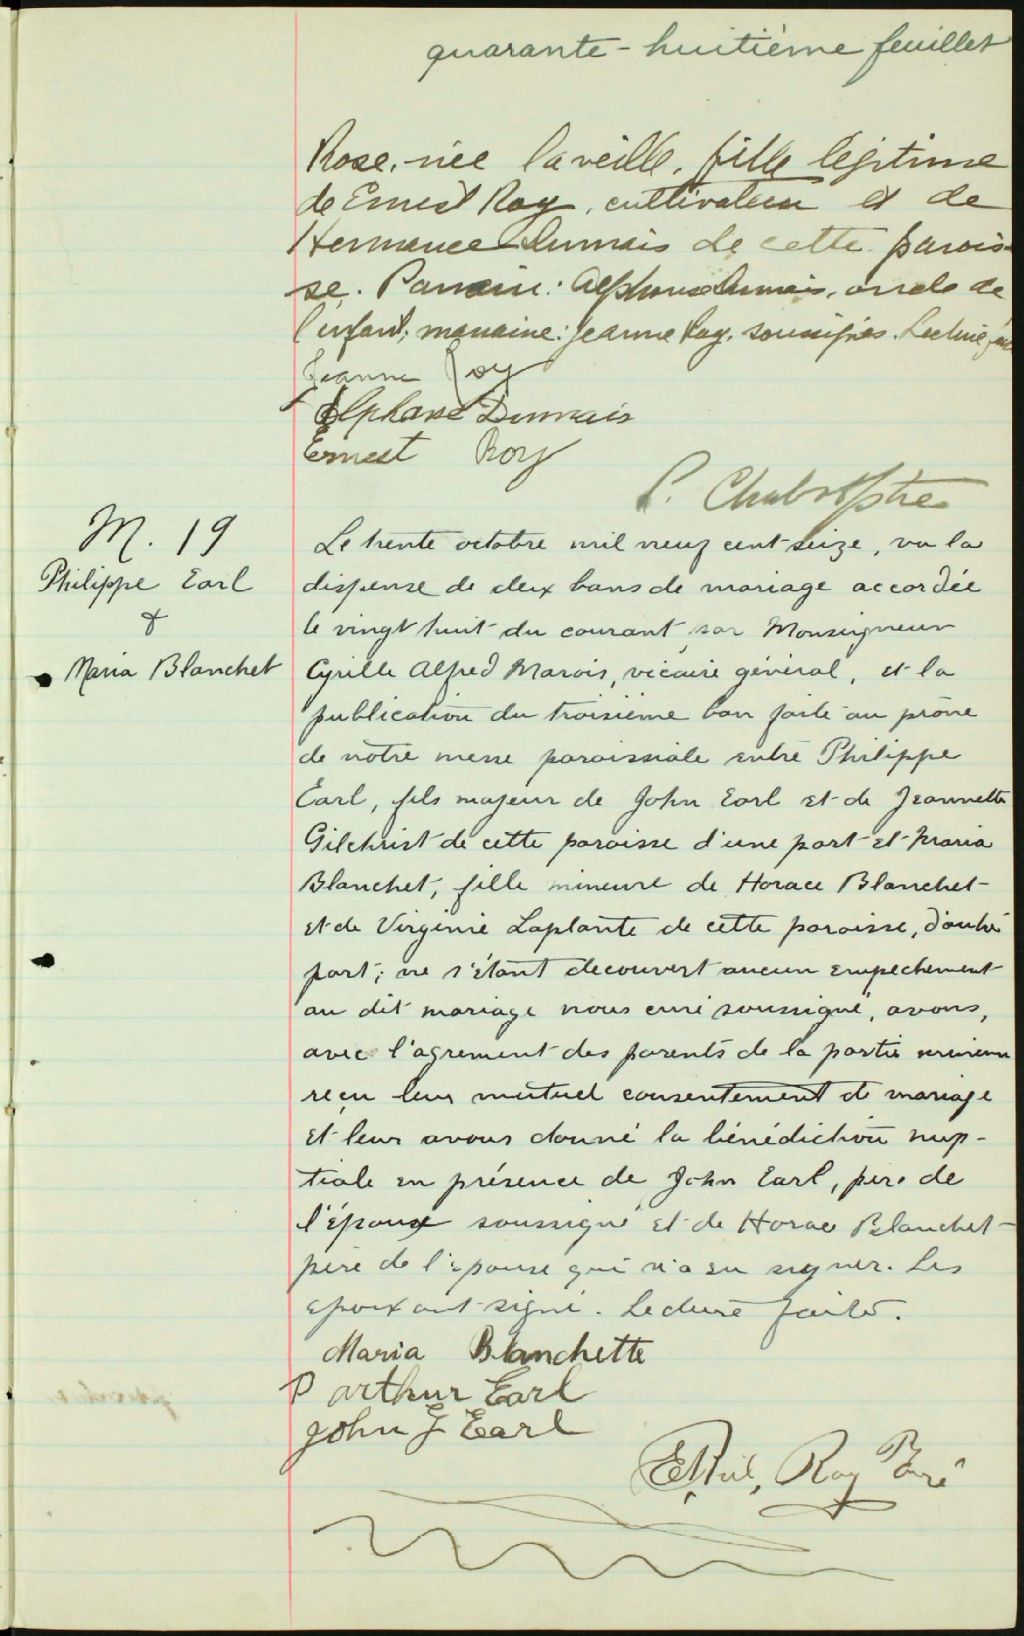 quarante-huitième feuillet
Rose, née la veille, fille légitime
de Ernest Roy, cultivateur et de
Hermance Dumais de cette parois-
se. Parrain: Alphonse Dumais, oncle de
l'enfant; marraine: Jeanne Roy, soussignés. Lecture faite
Jeanne Roy
Alphonse Dumais
Ernest Roy
P. Chabot Ptre
M. 19
Philippe Earl
&
Maria Blanchet
Le trente octobre mil neuf cent seize, vu la
dispense de deux bans de mariage accordée
le vingt huit du courant par Monseigneur
Cyrille Alfred Marois, vicaire général, et la
publication du troisième ban faite au prône
de notre messe paroissiale entre Philippe
Earl, fils majeur de John Earl et de Jeannette
Gilchrist de cette paroisse d'une part et Maria
Blanchet, fille mineure de Horace Blanchet
et de Virginie Laplante de cette paroisse, d'autre
part; ne s'étant decouvert aucun empechement
au dit mariage nous curé soussigné, avons,
avec l'agrement des parents de la partie mineure
reçu leur mutuel consentement de mariage
et leur avons donné la bénédiction nup-
tiale en présence de John Earl, père de
l'époux soussigné et de Horace Blanchet
père de l'épouse qui n'a su signer. Les
epoux ont signé. Lecture faite.
Maria Blanchette
P Arthur Earl
John J Earl
Roy Ptre Curé